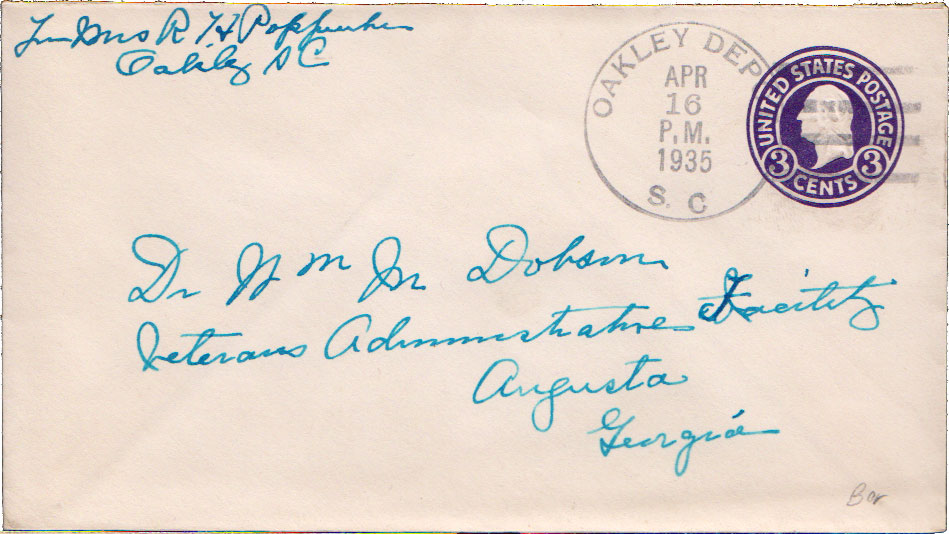 Mrs R H
Oakley SC
OAKLEY DEP
APR
16
P.M.
1935
S. C
UNITED STATES POSTAGE
3 CENTS 3
Dr Wm M Dobson
Veterans Administrative Facility
Augusta
Georgia